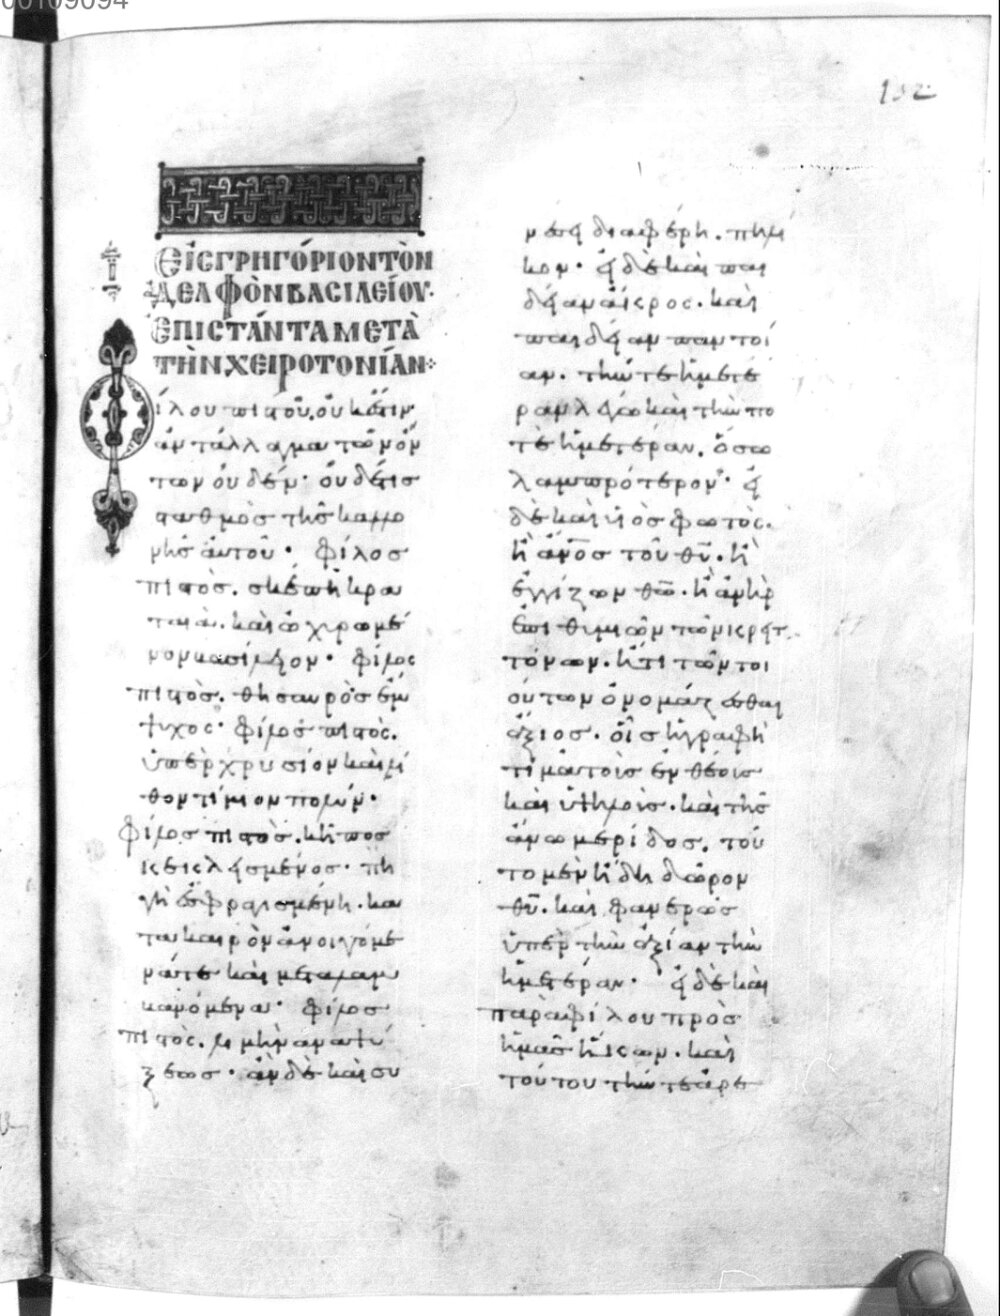 00109094
132
ΕἰϹ ΓΡΗΓΌΡΙΟΝ ΤῸΝ
ἈΔΕΛΦῸΝ ΒΑϹΙΛΕΊΟΥ·
ἘΠΙϹΤΆΝΤΑ ΜΕΤᾺ
ΤῊΝ ΧΕΙΡΟΤΟΝΊΑΝ:
Φίλου πιστοῦ. οὐκ ἔστιν
ἀντάλλαγμα τῶν ὄν
των οὐδέν· οὐδέ τις
σταθμὸς τῆς καλλο
νῆς αὐτοῦ· φίλος
πιστὸς. σκέπη κρα
ταιά. καὶ ὠχυρωμέ
νον βασίλειον· φίλος
πιστὸς. θησαυρὸς ἔμ
ψυχος· φίλος πιστὸς.
ὑπὲρ χρυσίον καὶ λί
θον τίμιον πολύν·
φίλος πιστὸς. κῆπος
κεκλεισμένος· πη
γὴ ἐσφραγισμένη. κα
τὰ καιρὸν ἀνοιγόμε
νά τε καὶ μεταλαμ
βανόμενα· φίλος
πιστὸς. λιμὴν ἀναψύ
ξεως· ἂν δὲ καὶ συ
νέσει διαφέρη. πηλί
κον· εἰ δὲ καὶ παι
δείαν ἄκρος. καὶ
παιδείαν παντοί
αν. τήν τε ἡμετέ
ραν λέγω καὶ τήν πο
τε ἡμετέραν. ὅσω
λαμπρότερον· εἰ
δὲ καὶ υἱὸς φωτὸς.
ἢ ἄνος τοῦ θυ. ἢ
ἐγγίζων θω. ἢ ἀνὴρ
ἐπιθυμιῶν τῶν κρειτ
τόνων. ἤ τι τῶν τοι
ούτων ὀνομάζεσθαι
ἄξιος. οἷς ἡ γραφὴ
τιμᾶ τοὺς ἐνθέους
καὶ ὑψηλοὺς. καὶ τῆς
ἄνω μερίδος. τοῦ
το μὲν ἤδη δῶρον
θυ. καὶ φανερῶς
ὑπὲρ τὴν ἀξίαν τὴν
ἡμετέραν· εἰ δὲ καὶ
παρὰ φίλου πρὸς
ἡμᾶς ἥκων. καὶ
τούτου τήν τε ἀρε